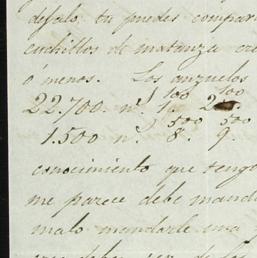 desfalo, tu puedes compar
cuchillos de matanza cre
ó menos. Los anzuelos
100 100
22.700. nº. 1. 2.
500 500
1.500 nº. 8. 9.
conocimiento que tengo
me parece debe manda
malo mandarle una